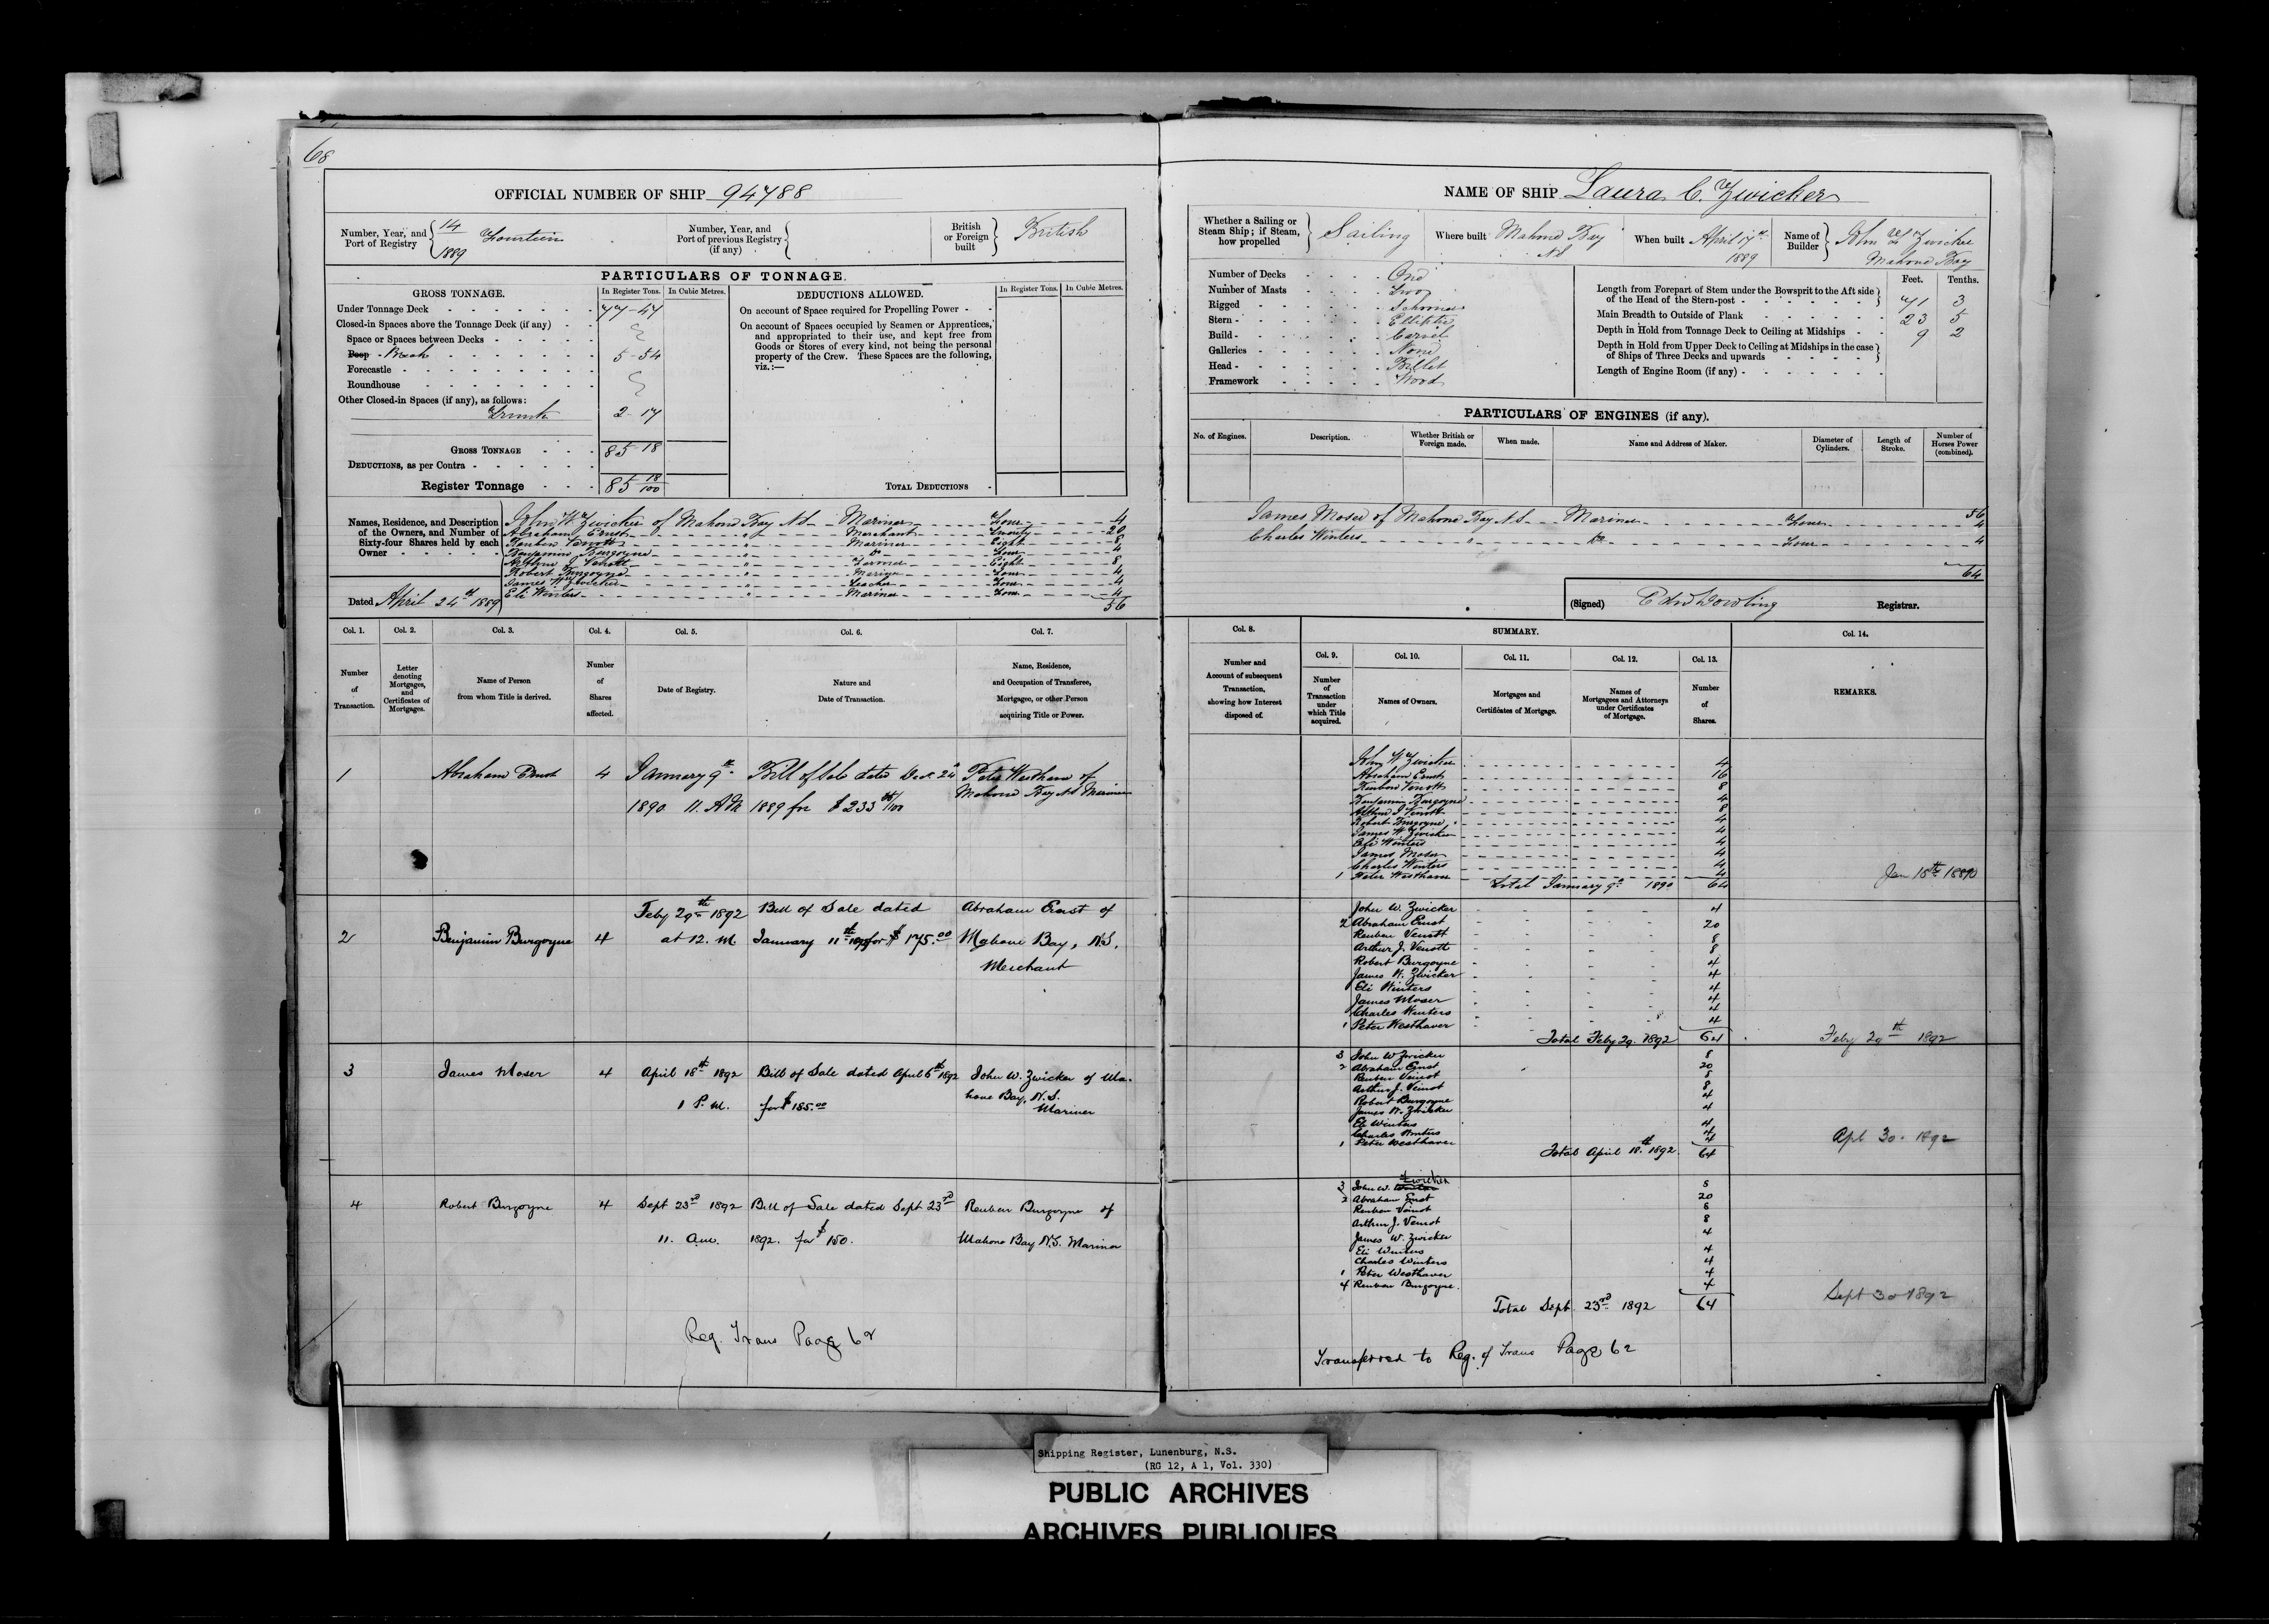 68
OFFICIAL NUMBER OF SHIP 94788
Number, Year, and Port of Registry 14/1889 Fourteen
Number, Year, and Port of previous Registry (if any)
British or Foreign built British
PARTICULARS OF TONNAGE.
GROSS TONNAGE. In Register Tons. In Cubic Metres.
Under Tonnage Deck 77-47
Closed-in Spaces above the Tonnage Deck (if any)
Space or Spaces between Decks
Poop Break 5-54
Forecastle
Roundhouse
Other Closed-in Spaces (if any), as follows:
Trunk 2-17
GROSS TONNAGE 85-18
DEDUCTIONS, as per Contra
Register Tonnage 85 18/100
DEDUCTIONS ALLOWED. In Register Tons. In Cubic Metres.
On account of Space required for Propelling Power
On account of Spaces occupied by Seamen or Apprentices,
and appropriated to their use, and kept free from
Goods or Stores of every kind, not being the personal
property of the Crew. These Spaces are the following,
viz.:—
TOTAL DEDUCTIONS
Names, Residence, and Description of the Owners, and Number of Sixty-four Shares held by each Owner
John W. Zwicker of Mahone Bay N.S. Mariner Four 4
Abraham Ernst " Merchant Twenty 20
Reuben Venott " Mariner Eight 8
Benjamin Burgoyne " Do Four 4
Arthur J. Venott " Farmer Eight 8
Robert Burgoyne " Mariner Four 4
James W. Zwicker " Teacher Four 4
Eli Winters " Mariner Four 4
56
Dated April 24th 1889
NAME OF SHIP Laura C. Zwicker
Whether a Sailing or Steam Ship; if Steam, how propelled Sailing
Where built Mahone Bay N.S.
When built April 17th 1889
Name of Builder John W. Zwicker Mahone Bay
Number of Decks One
Number of Masts Two
Rigged Schooner
Stern Elliptic
Build Carvel
Galleries None
Head Billet
Framework Wood
Feet. Tenths.
Length from Forepart of Stem under the Bowsprit to the Aft side of the Head of the Stern-post 71 3
Main Breadth to Outside of Plank 23 5
Depth in Hold from Tonnage Deck to Ceiling at Midships 9 2
Depth in Hold from Upper Deck to Ceiling at Midships in the case of Ships of Three Decks and upwards
Length of Engine Room (if any)
PARTICULARS OF ENGINES (if any).
No. of Engines. Description. Whether British or Foreign made. When made. Name and Address of Maker. Diameter of Cylinders. Length of Stroke. Number of Horses Power (combined).
56
James Moser of Mahone Bay N.S. Mariner Four 4
Charles Winters " Do Four 4
64
(Signed) Edw Dowling Registrar.
Col. 1. Number of Transaction.
Col. 2. Letter denoting Mortgages, and Certificates of Mortgages.
Col. 3. Name of Person from whom Title is derived.
Col. 4. Number of Shares affected.
Col. 5. Date of Registry.
Col. 6. Nature and Date of Transaction.
Col. 7. Name, Residence, and Occupation of Transferee, Mortgagee, or other Person acquiring Title or Power.
Col. 8. Number and Account of subsequent Transaction, showing how Interest disposed of.
SUMMARY.
Col. 9. Number of Transaction under which Title acquired.
Col. 10. Names of Owners.
Col. 11. Mortgages and Certificates of Mortgage.
Col. 12. Names of Mortgagees and Attorneys under Certificates of Mortgage.
Col. 13. Number of Shares.
Col. 14. REMARKS.
1 Abraham Ernst 4 January 9th Bill of Sale dated Dec. Peter Westhaver of
1890 11. AM 1889 for $233 Mahone Bay N.S. Mariner
John W. Zwicker 4
Abraham Ernst 16
Reuben Venott 8
Benjamin Burgoyne 4
Arthur J. Venott 8
Robert Burgoyne 4
James W. Zwicker 4
Eli Winters 4
James Moser 4
Charles Winters 4
1 Peter Westhaver 4
Total January 9th 1890 64
Jan 15th 1890
2 Benjamin Burgoyne 4 Feby 29th 1892 Bill of Sale dated Abraham Ernst of
at 12. M January 11th 1892 for $175.00 Mahone Bay, N.S.
Merchant
John W. Zwicker 4
2 Abraham Ernst 20
Reuben Venott 8
Arthur J. Venott 8
Robert Burgoyne 4
James W. Zwicker 4
Eli Winters 4
James Moser 4
Charles Winters 4
1 Peter Westhaver 4
Total Feby 29. 1892 64
Feby 29th 1892
3 James Moser 4 April 18th 1892 Bill of Sale dated April 6th 1892 John W. Zwicker of Ma-
1 P.M. for $185.00 hone Bay, N.S.
Mariner
3 John W Zwicker 8
2 Abraham Ernst 20
Reuben Veinot 8
Arthur J. Veinot 8
Robert Burgoyne 4
James W. Zwicker 4
Eli Winters 4
Charles Winters 4
1 Peter Westhaver 4
Total April 18th 1892. 64
Apl 30. 1892
4 Robert Burgoyne 4 Sept 23rd 1892 Bill of Sale dated Sept 23rd Reuben Burgoyne of
11. am. 1892. for $150. Mahone Bay N.S. Mariner
3 John W. Zwicker 8
2 Abraham Ernst 20
Reuben Veinot 8
Arthur J. Veinot 8
James W. Zwicker 4
Eli Winters 4
Charles Winters 4
1 Peter Westhaver 4
4 Reuben Burgoyne. 4
Total Sept 23rd 1892 64
Sept 30 1892
Reg. Trans Page 62
Transferred to Reg. of Trans Page 62
Shipping Register, Lunenburg, N.S.
(RG 12, A 1, Vol. 330)
PUBLIC ARCHIVES
ARCHIVES PUBLIQUES